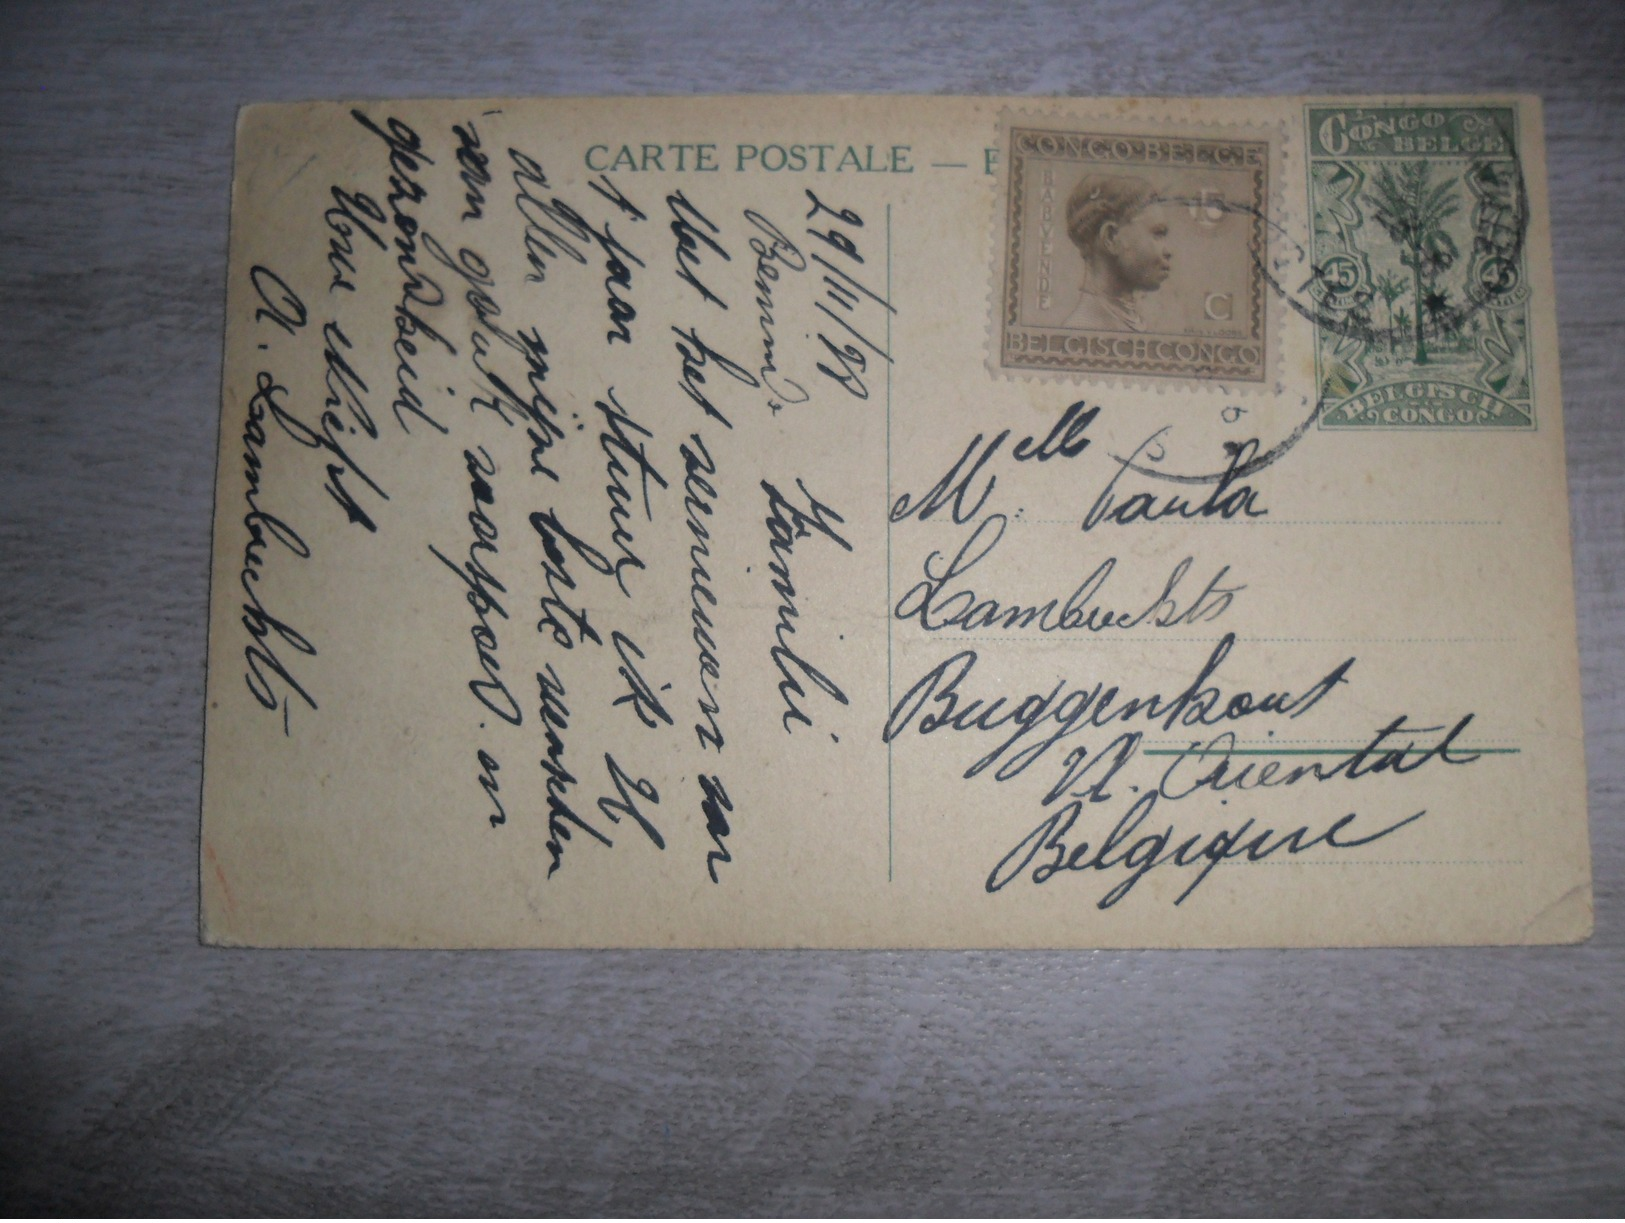 CARTE POSTALE —
CONGO BELGE
BABUENDE
15
C
BELGISCH CONGO
CONGO
BELGE
15
15
BELGISCH
CONGO
29/11/28
Beminde Familie
Met het vernieuwen van
't jaar stuur ik U
allen mijne beste wenschen
van geluk voorspoed en
gezondheid
Uwe
A. Lambrechts
Melle Paula
Lambrechts
Buggenhout
Vl. Orientale
Belgique